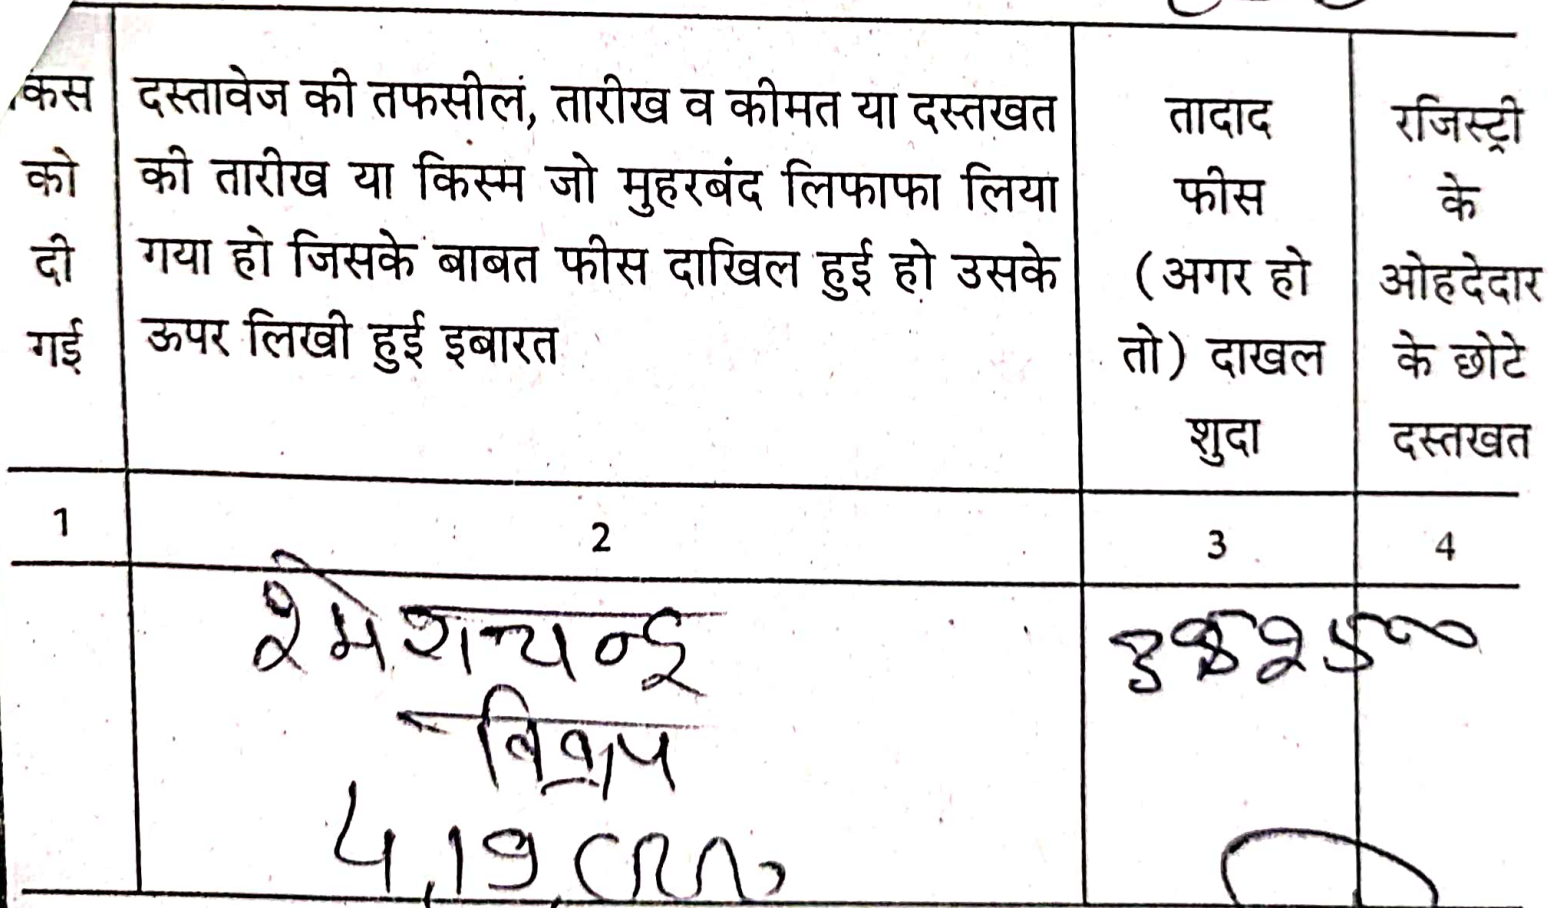 किस
को
दी
गई
दस्तावेज की तफसील, तारीख व कीमत या दस्तखत
की तारीख या किस्म जो मुहरबंद लिफाफा लिया
गया हो जिसके बाबत फीस दाखिल हुई हो उसके
ऊपर लिखी हुई इबारत
तादाद
फीस
(अगर हो
तो) दाखल
शुदा
रजिस्ट्री
के
ओहदेदार
के छोटे
दस्तखत
1
2
3
4
रमेशचन्द्र
विक्रय